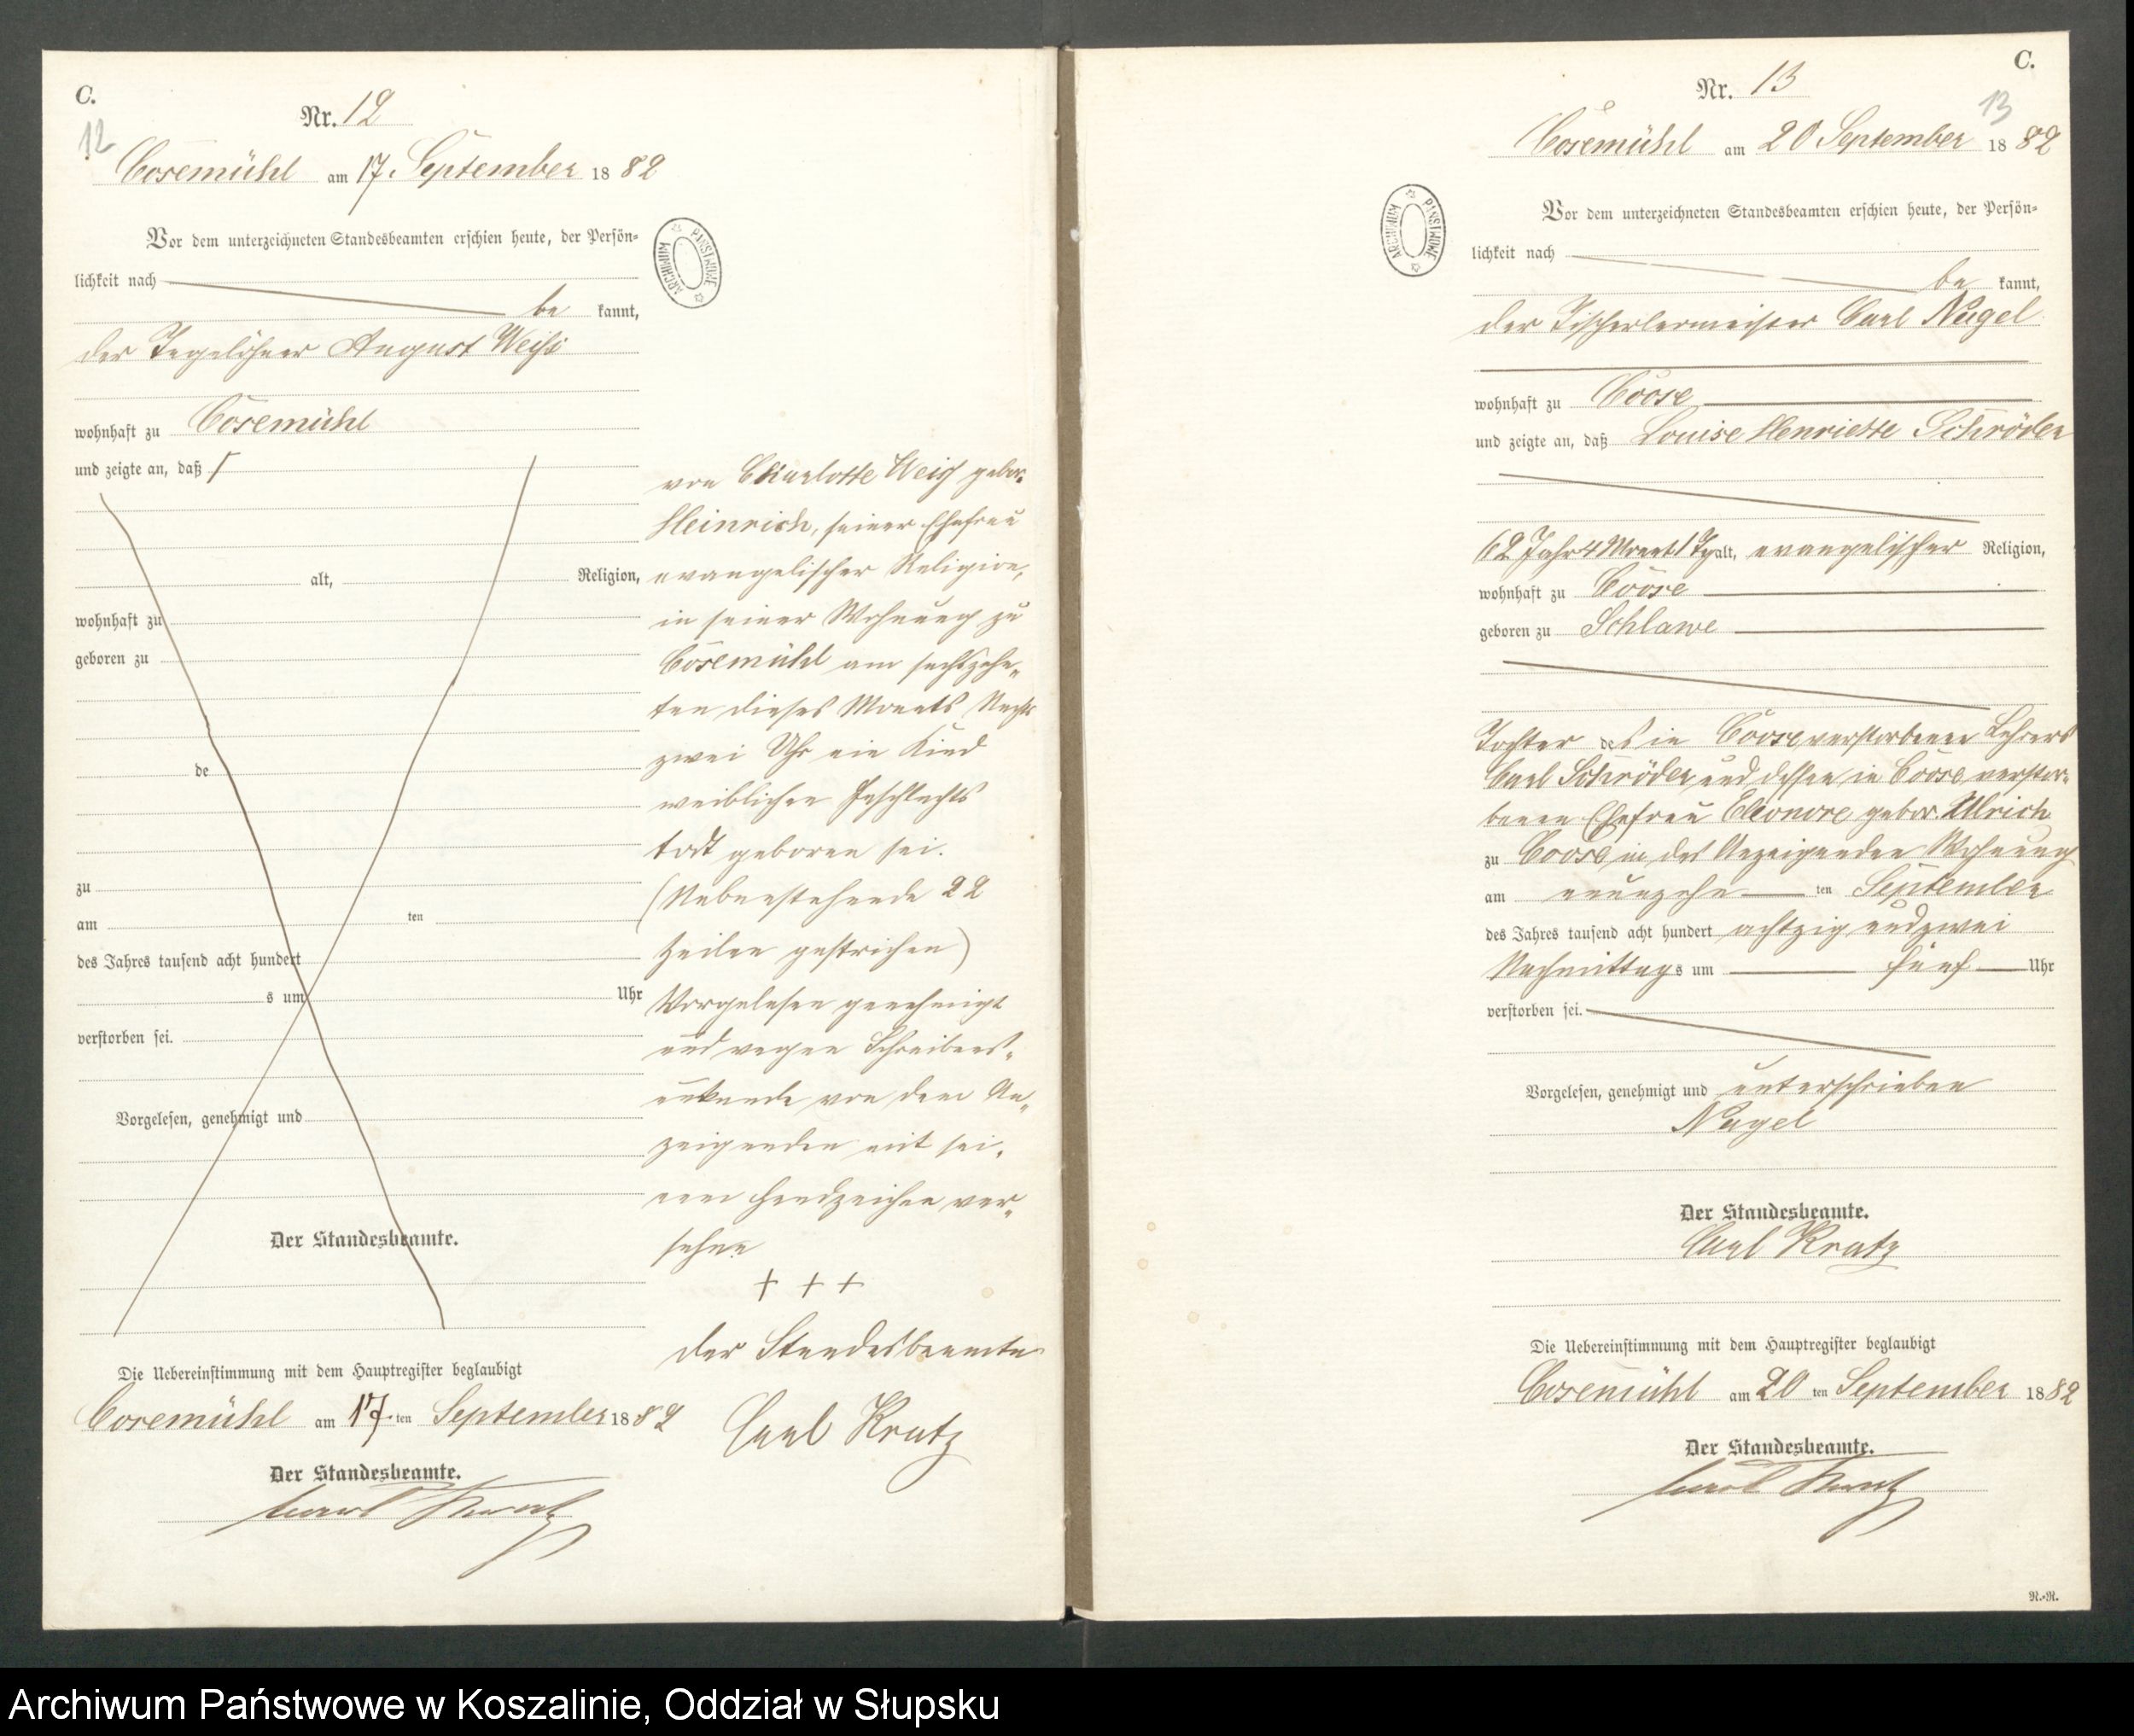 C.
12
Nr. 12
Coosemühl am 17. September 1882
Vor dem unterzeichneten Standesbeamten erschien heute, der Persön-
lichkeit nach
be kannt,
der Tagelöhner August Weiß
wohnhaft zu Coosemühl
und zeigte an, daß
alt, Religion,
wohnhaft zu
geboren zu
de
zu
am ten
des Jahres tausend acht hundert
s um Uhr
verstorben sei.
Vorgelesen, genehmigt und
Der Standesbeamte.
von Charlotte Weiß gebor.
Heinrich, seiner Ehefrau
evangelischer Religion,
in seiner Wohnung zu
Coosemühl am sechszehn-
ten dieses Monats Nachts
zwei Uhr ein Kind
weiblichen Geschlechts
todt geboren sei.
(Nebenstehende 22
Zeilen gestrichen)
Vorgelesen genehmigt
und wegen Schreibens-
unkunde von dem An-
zeigenden mit sei-
nem Handzeichen ver-
sehen
+ + +
der Standesbeamte
Carl Kratz
Die Uebereinstimmung mit dem Hauptregister beglaubigt
Coosemühl am 17. ten September 1882
Der Standesbeamte.
Carl Kratz
ARCHIWUM PAŃSTWOWE
C.
13
Nr. 13
Coosemühl am 20 September 1882
Vor dem unterzeichneten Standesbeamten erschien heute, der Persön-
lichkeit nach
be kannt,
der Tischlermeister Carl Nagel
wohnhaft zu Coose
und zeigte an, daß Louise Henriette Schröder
62 Jahr 4 Monat 1 Tg alt, evangelischer Religion,
wohnhaft zu Coose
geboren zu Schlawe
Tochter des in Coose verstorbenen Lehrers
Carl Schröder und dessen in Coose verstor-
benen Ehefrau Eleonore gebor. Ullrich
zu Coose in des Anzeigenden Wohnung
am neunzehn ten September
des Jahres tausend acht hundert achtzig und zwei
Nachmittags um fünf Uhr
verstorben sei.
Vorgelesen, genehmigt und unterschrieben
Nagel
Der Standesbeamte.
Carl Kratz
Die Uebereinstimmung mit dem Hauptregister beglaubigt
Coosemühl am 20 ten September 1882
Der Standesbeamte.
Carl Kratz
R.-R.
ARCHIWUM PAŃSTWOWE
Archiwum Państwowe w Koszalinie, Oddział w Słupsku